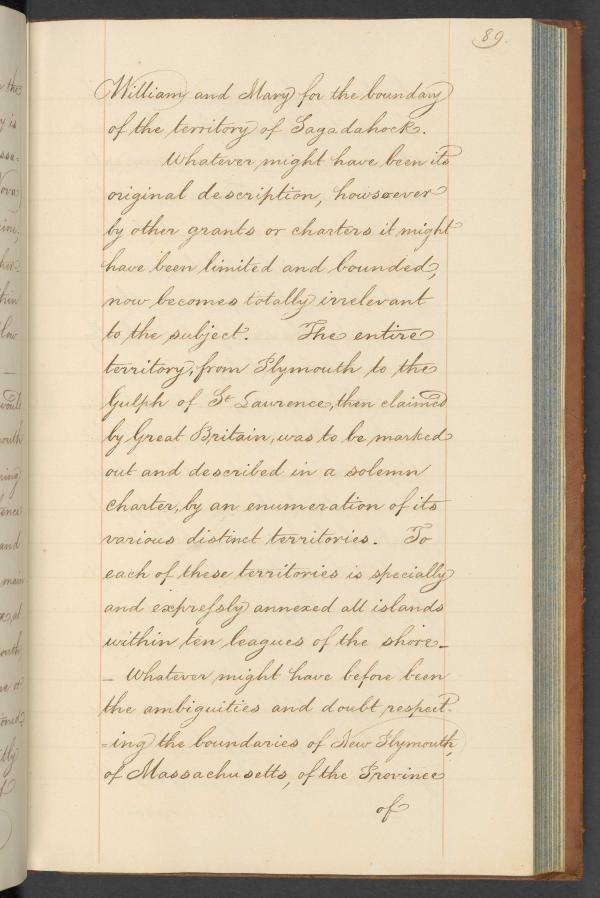 89.
William and Mary for the boundary
of the territory of Sagadahock.
Whatever might have been its
original description, howsoever
by other grants or charters it might
have been limited and bounded,
now becomes totally irrelevant
to the subject. The entire
territory, from Plymouth to the
Gulph of St Laurence, then claimed
by Great Britain, was to be marked
out and described in a solemn
charter, by an enumeration of its
various distinct territories. To
each of these territories is specially
and expressly annexed all islands
within ten leagues of the shore –
– Whatever might have before been
the ambiguities and doubt respect-
=ing the boundaries of New Plymouth,
of Massachusetts, of the Province
of